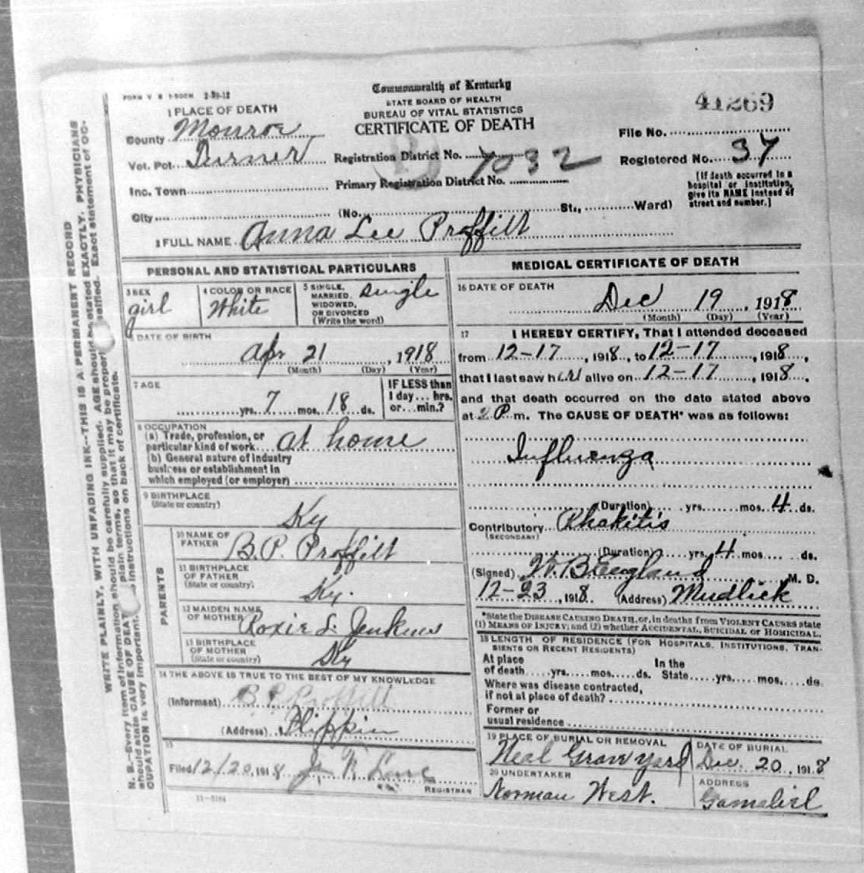 FORM V. S. 1-500M 2-29-12
Commonwealth of Kentucky
STATE BOARD OF HEALTH
BUREAU OF VITAL STATISTICS
CERTIFICATE OF DEATH
41269
1 PLACE OF DEATH
County Monroe
File No.
Vot. Pct. Turner
Registration District No. 7032
Registered No. 37
Inc. Town
Primary Registration District No.
[If death occurred in a hospital or institution, give its NAME instead of street and number.]
City (No. St., Ward)
2 FULL NAME Anna Lee Proffitt
PERSONAL AND STATISTICAL PARTICULARS
3 SEX girl
4 COLOR OR RACE White
5 SINGLE, MARRIED, WIDOWED, OR DIVORCED (Write the word) single
6 DATE OF BIRTH
Apr 21, 1918
(Month) (Day) (Year)
7 AGE
yrs. 7 mos. 18 ds.
IF LESS than 1 day... hrs. or... min.?
8 OCCUPATION
(a) Trade, profession, or particular kind of work at home
(b) General nature of industry business or establishment in which employed (or employer)
9 BIRTHPLACE
(State or country) Ky
PARENTS
10 NAME OF FATHER B.P. Proffitt
11 BIRTHPLACE OF FATHER (State or country) Ky.
12 MAIDEN NAME OF MOTHER Roxie L. Jenkins
13 BIRTHPLACE OF MOTHER (State or country) Ky
14 THE ABOVE IS TRUE TO THE BEST OF MY KNOWLEDGE
(Informant) B P Proffitt
(Address) Flippin
15
Filed 12/20, 1918
REGISTRAR
11-3184
MEDICAL CERTIFICATE OF DEATH
16 DATE OF DEATH
Dec 19, 1918
(Month) (Day) (Year)
17 I HEREBY CERTIFY, That I attended deceased
from 12-17, 1918, to 12-17, 1918,
that I last saw her alive on 12-17, 1918,
and that death occurred on the date stated above
at 2 P m. The CAUSE OF DEATH* was as follows:
Influenza
(Duration) yrs. mos. 4 ds.
Contributory Rhakitis
(SECONDARY)
(Duration) yrs. 4 mos. ds.
(Signed) M. D.
12-23, 1918 (Address) Mudlick
*State the DISEASE CAUSING DEATH, or, in deaths from VIOLENT CAUSES state (1) MEANS OF INJURY; and (2) whether ACCIDENTAL, SUICIDAL or HOMICIDAL.
18 LENGTH OF RESIDENCE (FOR HOSPITALS, INSTITUTIONS, TRANSIENTS OR RECENT RESIDENTS)
At place of death yrs. mos. ds. In the State yrs. mos. ds.
Where was disease contracted,
if not at place of death?
Former or
usual residence
19 PLACE OF BURIAL OR REMOVAL
Neal Grave yard
DATE OF BURIAL
Dec. 20, 1918
20 UNDERTAKER
Norman West.
ADDRESS
Gamaliel
WRITE PLAINLY, WITH UNFADING INK--THIS IS A PERMANENT RECORD
N. B.--Every item of information should be carefully supplied. AGE should be stated EXACTLY. PHYSICIANS
should state CAUSE OF DEATH in plain terms, so that it may be properly classified. Exact statement of OC-
CUPATION is very important. instructions on back of certificate.